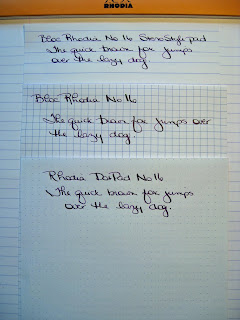 RHODIA
Bloc Rhodia No 16 Steno Style pad
The quick brown fox jumps
over the lazy dog.
Bloc Rhodia No 16
The quick brown fox jumps over
the lazy dog.
Rhodia DotPad No 16
The quick brown fox jumps
over the lazy dog.